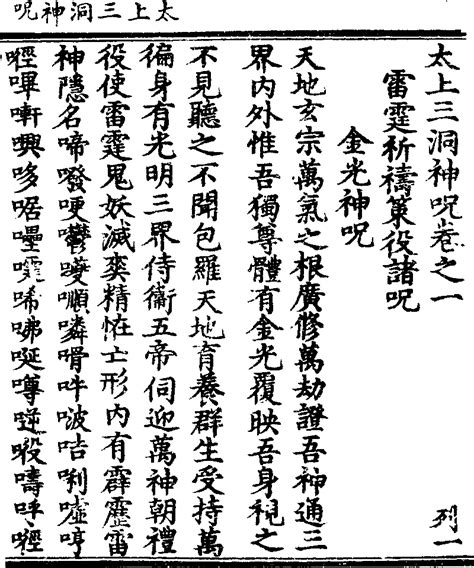 太上三洞神呪
太上三洞神呪卷之一 列一
雷霆祈禱策役諸呪
金光神呪
天地玄宗萬氣之根廣修萬劫證吾神通三
界內外惟吾獨尊體有金光覆映吾身視之
不見聽之不聞包羅天地育養群生受持萬
徧身有光明三界侍衞五帝伺迎萬神朝禮
役使雷霆鬼妖滅爽精怪亡形內有霹靂雷
神隱名啼㗶哽噸嘳吽啵咭唎嘘哼
嚊㖇哆啒囇唏咈唌噂嚋呼